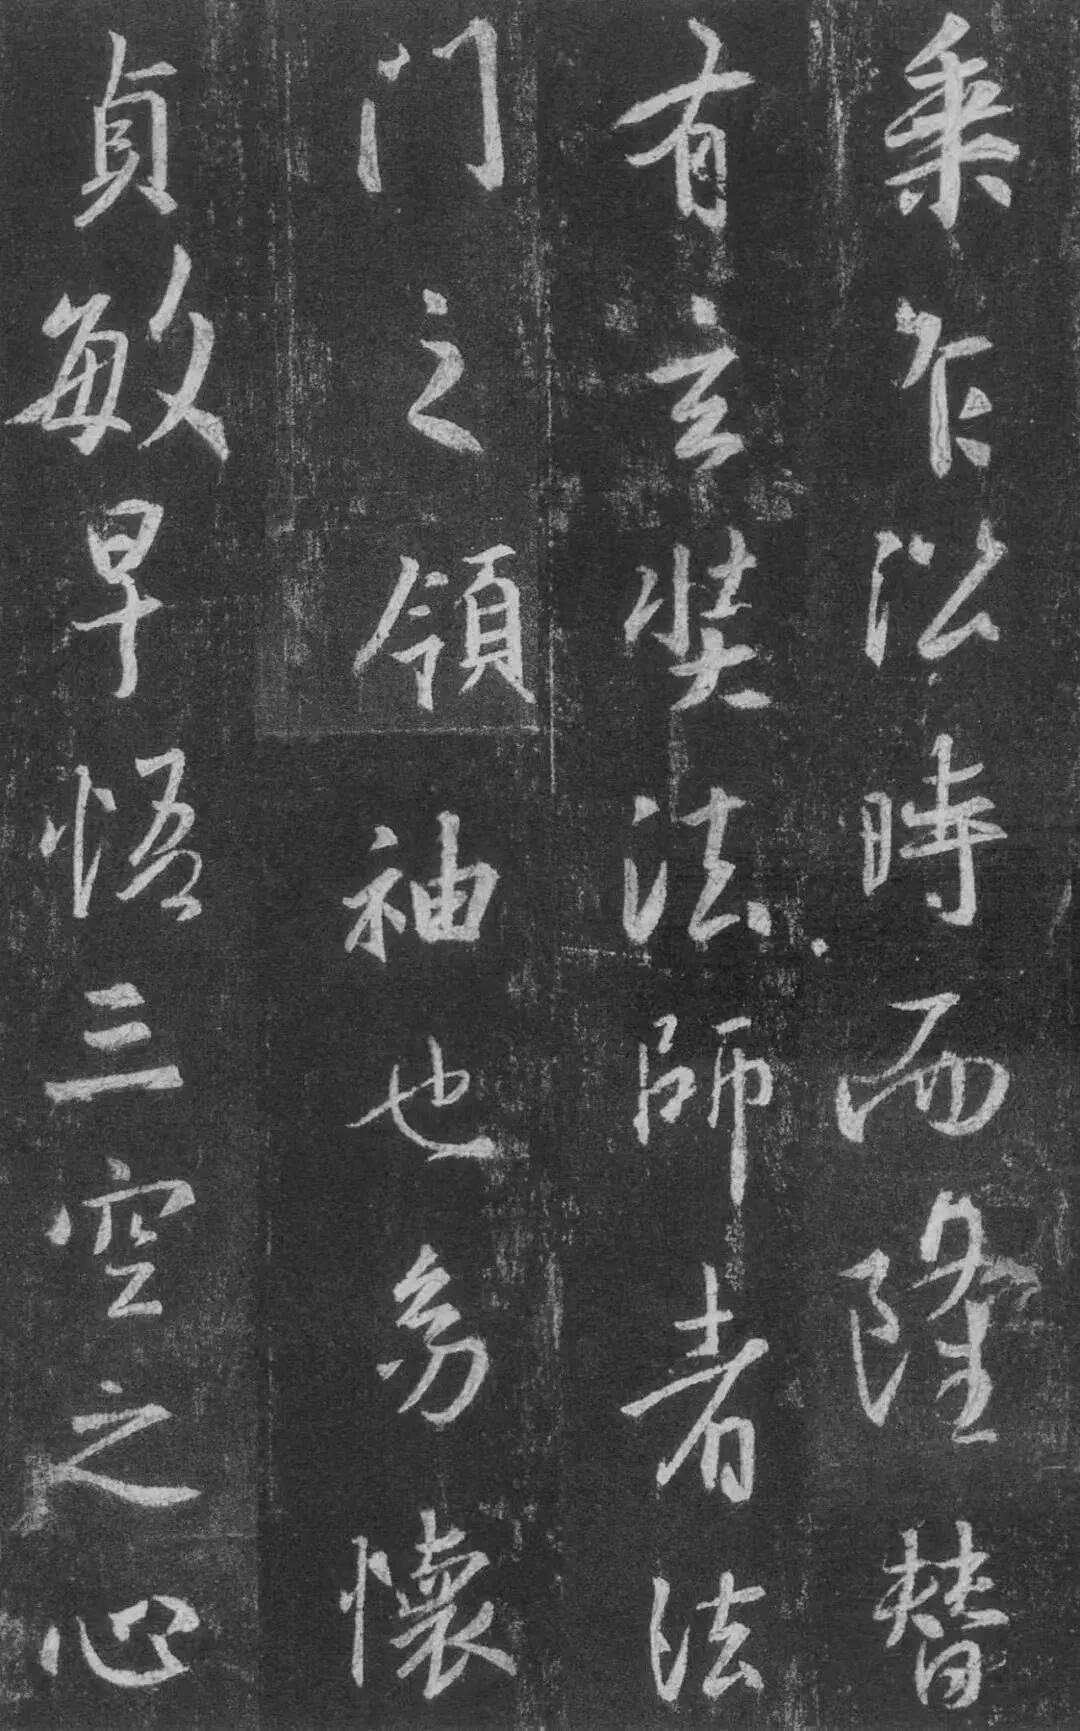 乘乍㳂時而隆替
有玄奘法師者法
門之領袖也㓜懷
貞敏早悟三空之心